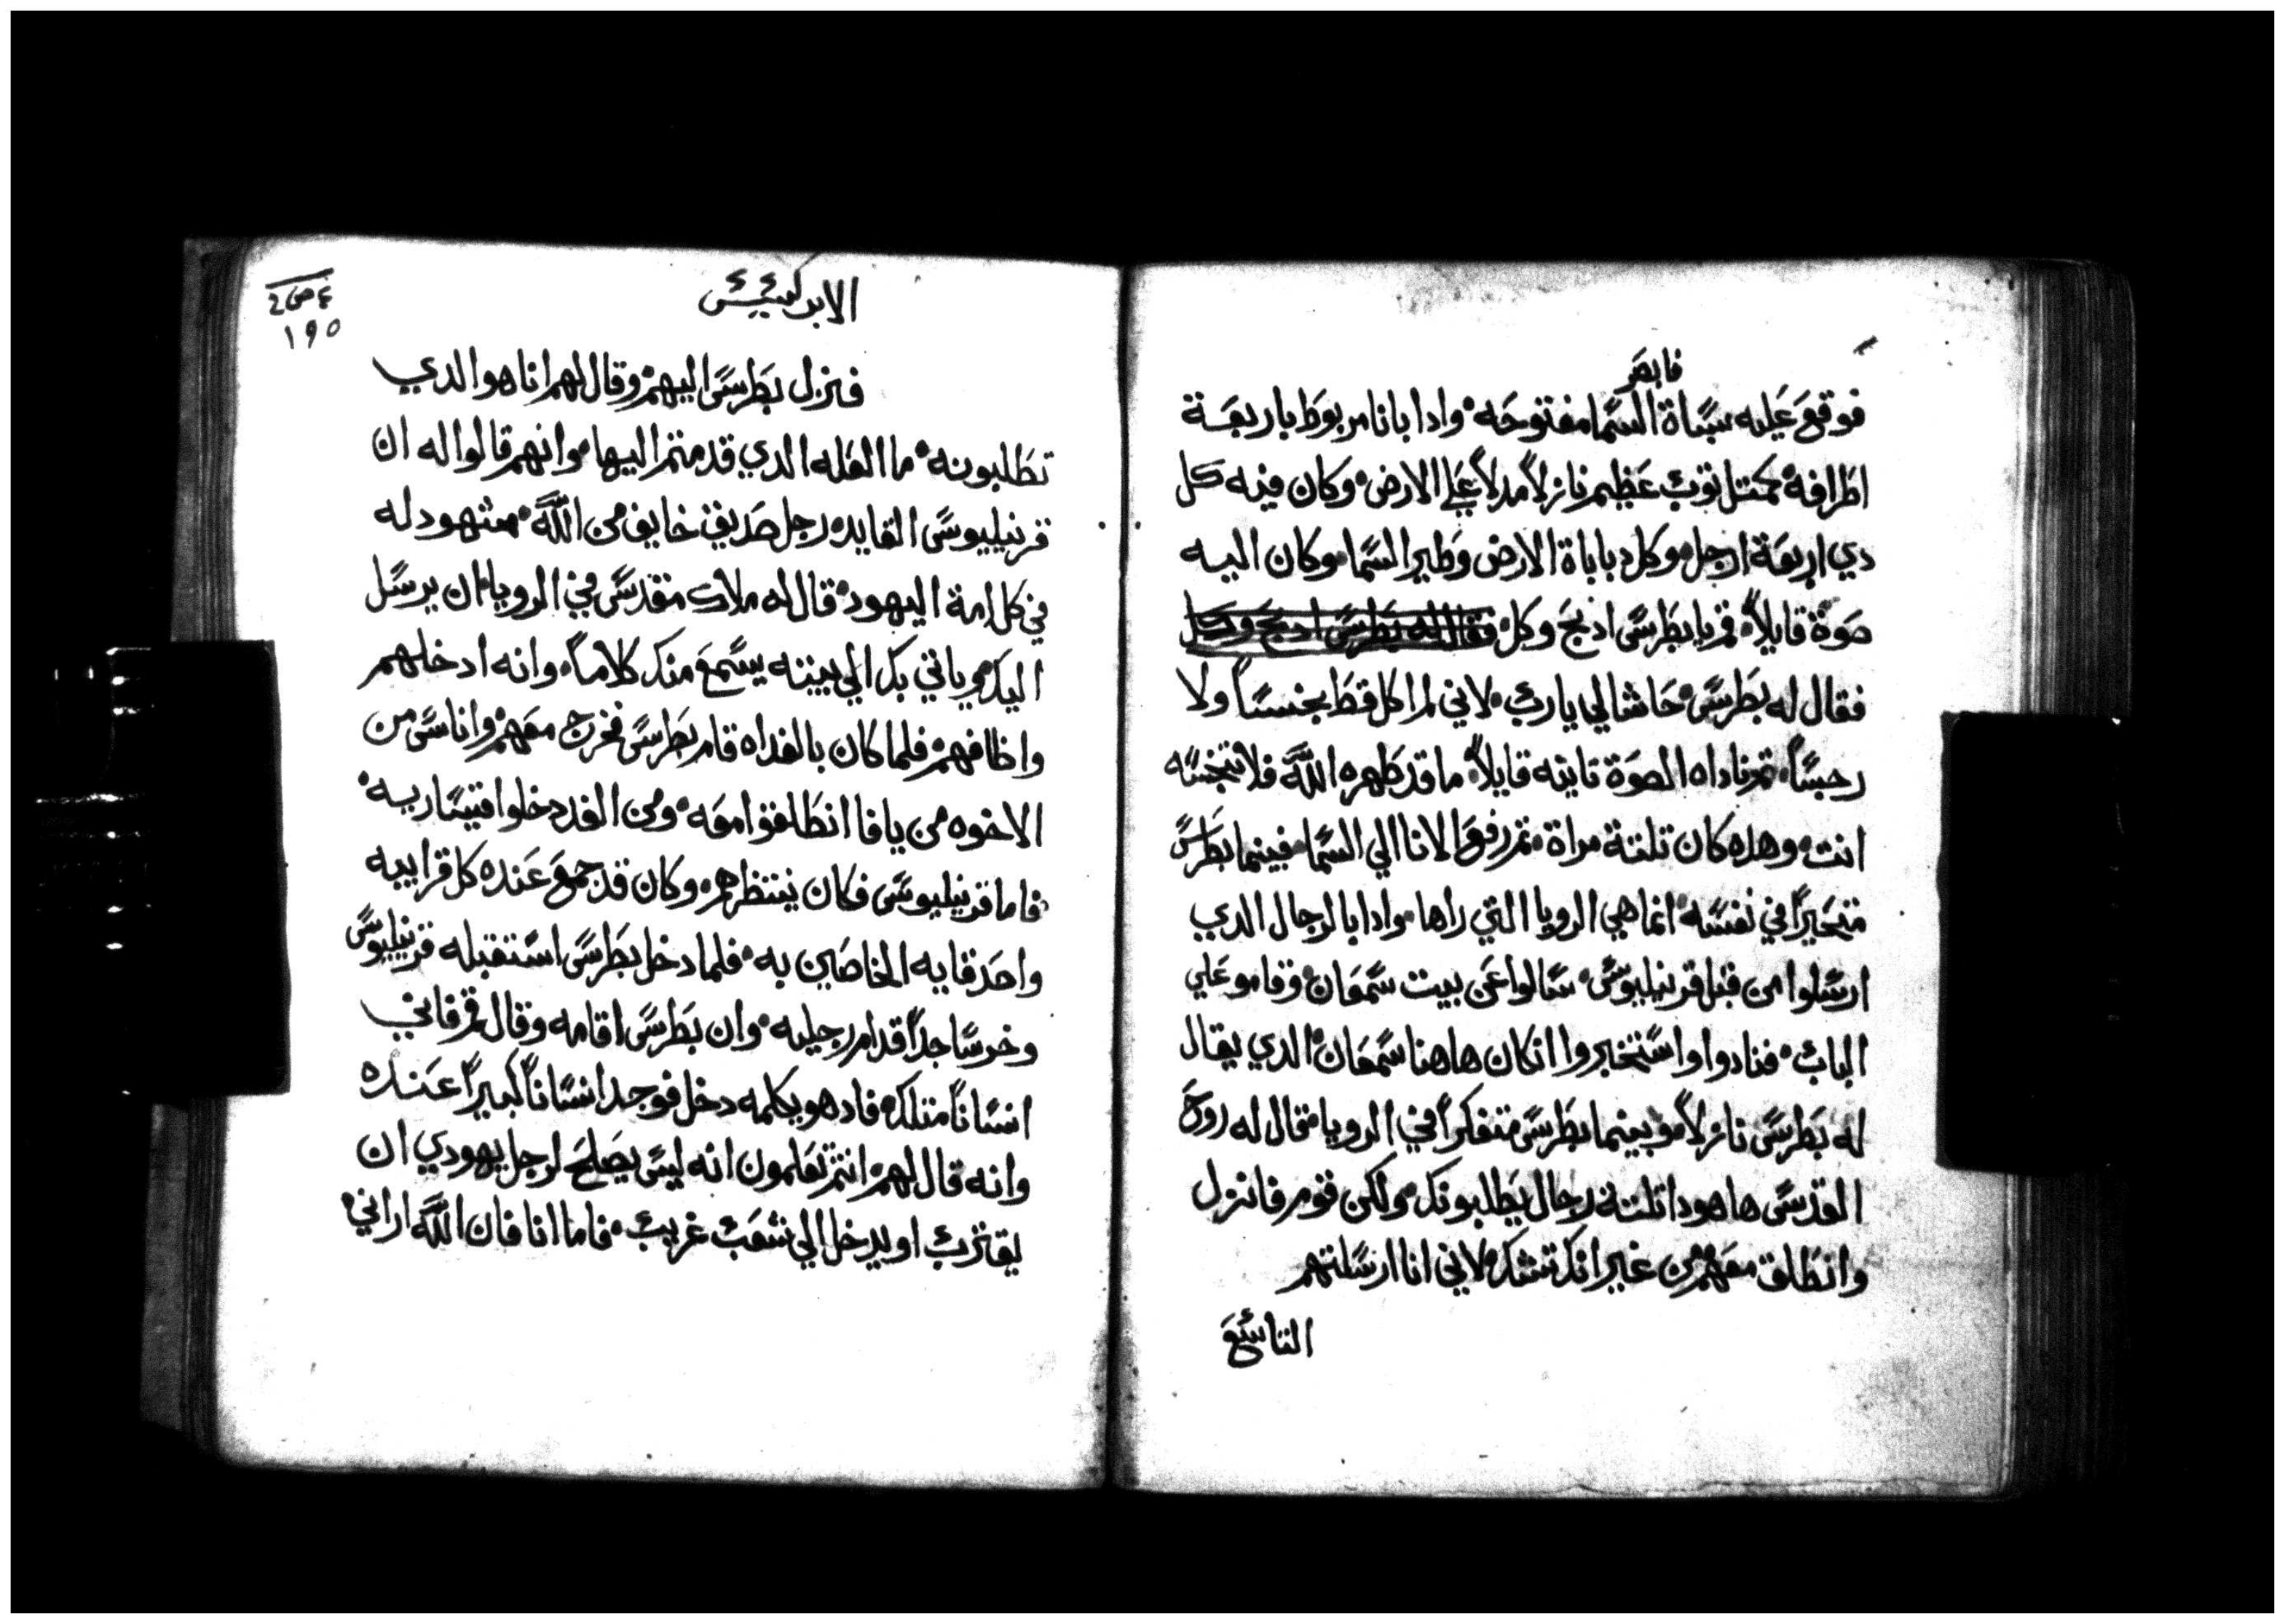 فابصر
فوقع عليه سباة السما مفتوحه، وادا بانا مربوط باربعة
اطرافة كمتل توب عظيم نازلاً مدلاً علي الارض، وكان فيه كل
دي اربعة ارجل، وكل دباباة الارض وطير السما، وكان اليه
صوة قايلاً، قم يا بطرس ادبح وكل، فقال له بطرس ادبح وكل
فقال له بطرس، حاشا لي يا رب، لاني لم اكل قط نجسساً ولا
رجساً، تم ناداه الصوة تاينه قايلاً، ما قد طهره الله فلا تنجسه
انت، وهده كان تلتة مراة، تم رفع الانا الي السما، فبينما بطرس
متحيراً في نفسه، انما هي الرويا التي راها، وادا بالرجال الدي
ارسلوا من قبل قرنيليوس، سالوا عن بيت سمعان، وقامو علي
الباب، فنادوا واستخبروا انكان هاهنا سمعان، الدي يقال
له بطرس نازلاً، وبينما بطرس متفكراً في الرويا، قال له روح
القدس ها هودا تلتة رجال يطلبونك، ولكن قوم فانزل
وانطلق معهم، من غير انك تشك، لاني انا ارسلتهم
التاسع
الابركسيس
١٩٥
فنزل بطرس اليهم، وقال لهم انا هو الدي
تطلبونه، ما العله الدي قدمتم اليها، وانهم قالوا له ان
قرنيليوس القايد، رجل صديق خايف من الله، مشهود له
في كل امة اليهود، قال له ملاك مقدس في الرويا، ان يرسل
اليك، وياتي بك الي بيته يسمع منك كلاماً، وانه ادخلهم
واظافهم، فلما كان بالغداه قام بطرس فخرج معهم، واناس من
الاخوه من يافا انطلقوا معه، ومن الغد دخلوا قيساريه،
فاما قرنيليوس فكان ينتظرهم، وكان قد جمع عنده كل قرابيه
واحدقايه الخاصين به، فلما دخل بطرس استقبله قرنيليوس
وخر ساجداً قدام رجليه، وان بطرس اقامه وقال قم فاني
انساناً متلك، فاد هو يكلمه دخل فوجد انساناً كبيراً عنده
وانه قال لهم، انتم تعلمون انه ليس يصلح لرجل يهودي ان
يقترب او يدخل الي شعب غريب، فاما انا فان الله اراني،